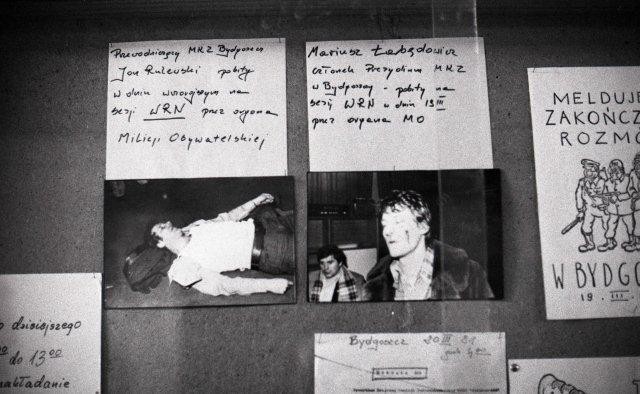 Przewodniczący MKZ Bydgoszcz
Jan Rulewski pobity
w dniu wczorajszym na
sesji WRN przez organa
Milicji Obywatelskiej
Mariusz Łabędowicz
członek Prezydium MKZ
w Bydgoszczy - pobity na
sesji WRN w dniu 19 III
przez organa MO
MELDUJE
ZAKOŃCZ
ROZMO
W BYDGO
19. III.
o dzisiejszego
00 do 13 00
nakładanie
Bydgoszcz 20 III 81